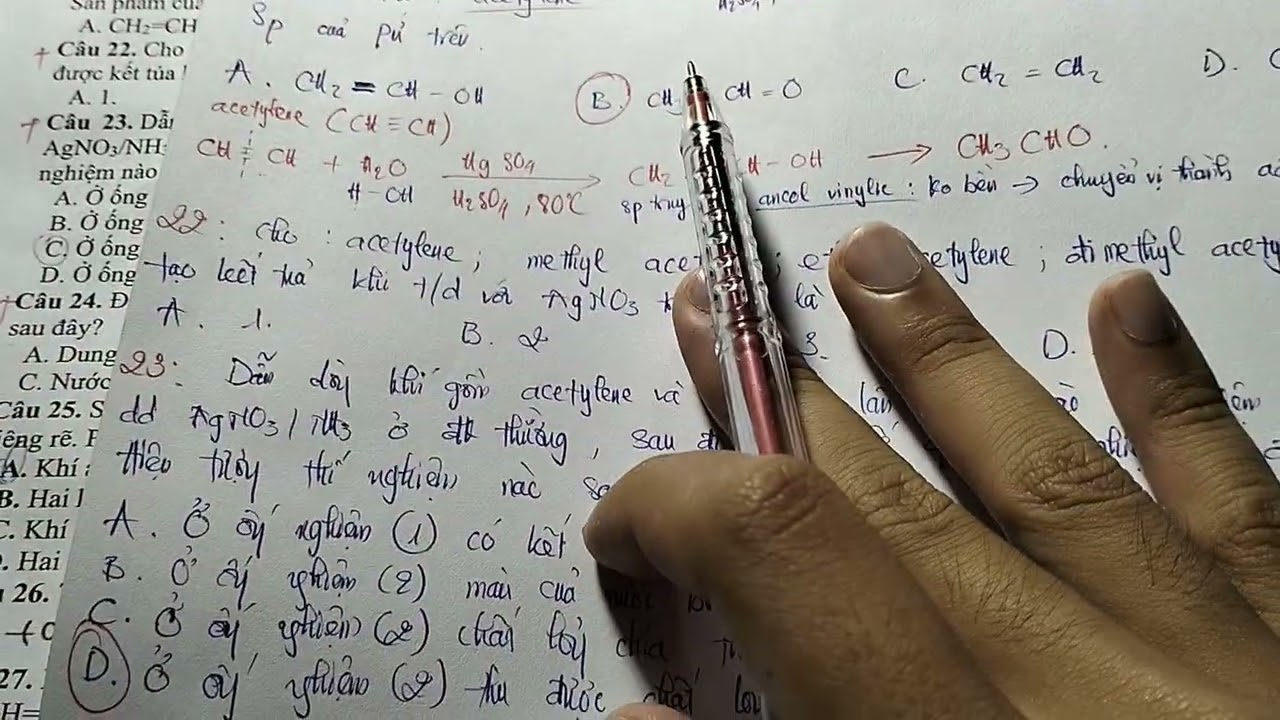 Sản phẩm của
A. CH₂=CH
+ Câu 22. Cho
được kết tủa
A. 1.
+ Câu 23. Dẫn
AgNO₃/NH₃
nghiệm nào
A. Ở ống
B. Ở ống
C. Ở ống
D. Ở ống
+ Câu 24. Đ
sau đây?
A. Dung
C. Nước
Câu 25. S
riêng rẽ. P
A. Khí
B. Hai l
C. Khí
D. Hai
26.
27.
acetylene H₂SO₄,
Sp của pứ trên.
A. CH₂ = CH - OH B. CH CH = O C. CH₂ = CH₂ D. C
acetylene (CH ≡ CH)
CH ≡ CH + H₂O HgSO₄ CH₂ CH - OH → CH₃CHO.
H - OH H₂SO₄, 80°C sp trung ancol vinylic : ko bền → chuyển vị thành
22 : cho : acetylene ; methyl ; acetylene ; đimethyl acety
tạo kết tủa khi t/d với AgNO₃ là
A. 1. B. 2 3. D.
23: Dẫn dòng khí gồm acetylene và
dd AgNO₃/NH₃ ở đk thường, sau
thiệu trong thí nghiệm nào
A. Ở ống nghiệm (1) có kết
B. Ở ống nghiệm (2) màu của nước
C. Ở ống nghiệm (2) chất lỏng chia
D. Ở ống nghiệm (2) thu được chất